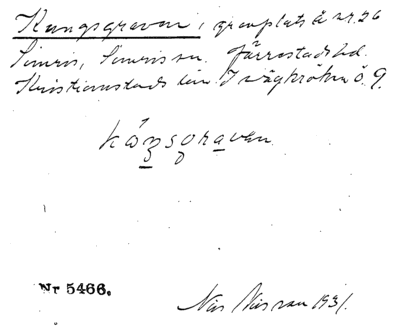 Kungsgraven, gravplats å nr. 26
Simris, Simris sn. Järrestads hd.
Kristianstads län. I vägkrökn ö. 9.
kóŋsgravən
Nr 5466.
Nils Nilsson 1931.